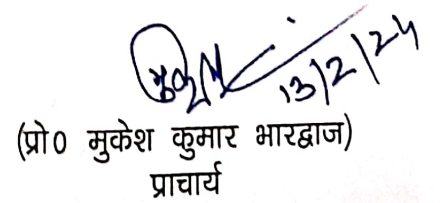 13/2/24
(प्रो० मुकेश कुमार भारद्वाज)
प्राचार्य